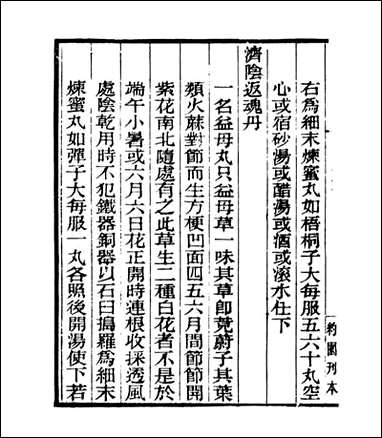 右爲細末煉蜜丸如梧桐子大每服五六十丸空
心或宿砂湯或醋湯或酒或滾水任下
濟陰返魂丹
一名益母丸只益母草一味其草卽茺蔚子其葉
類火蔴對節而生方梗凹面四五六月間節節開
紫花南北隨處有之此草生二種白花者不是於
端午小暑或六月六日花正開時連根收採透風
處陰乾用時不犯鐵器銅器以石臼搗羅爲細末
煉蜜丸如彈子大每服一丸各照後開湯使下若
約園刊本